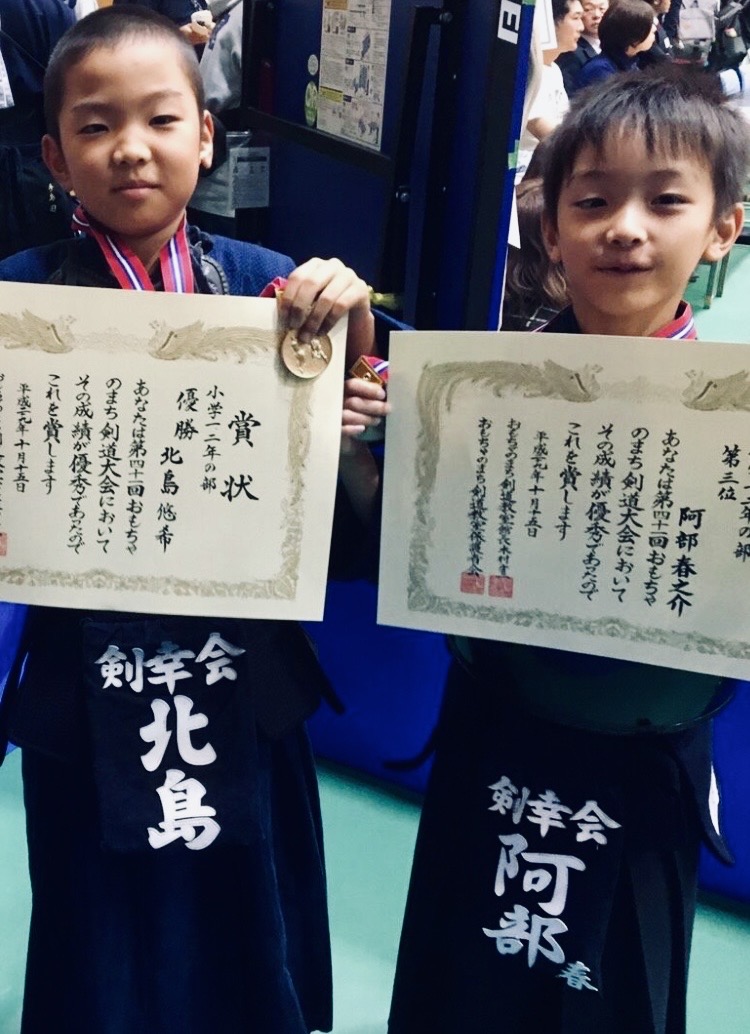 賞状
小学一二年の部
優勝 北島悠希
あなたは第四十一回おもちゃ
のまち剣道大会において
その成績が優秀であったので
これを賞します
平成二九年十月十五日
第三位
阿部春之介
あなたは第四十一回おもちゃ
のまち剣道大会において
その成績が優秀であったので
これを賞します
平成二九年十月十五日
おもちゃのまち剣道教室
おもちゃのまち剣道教室保護者会
剣幸会
北島
剣幸会
阿部
春